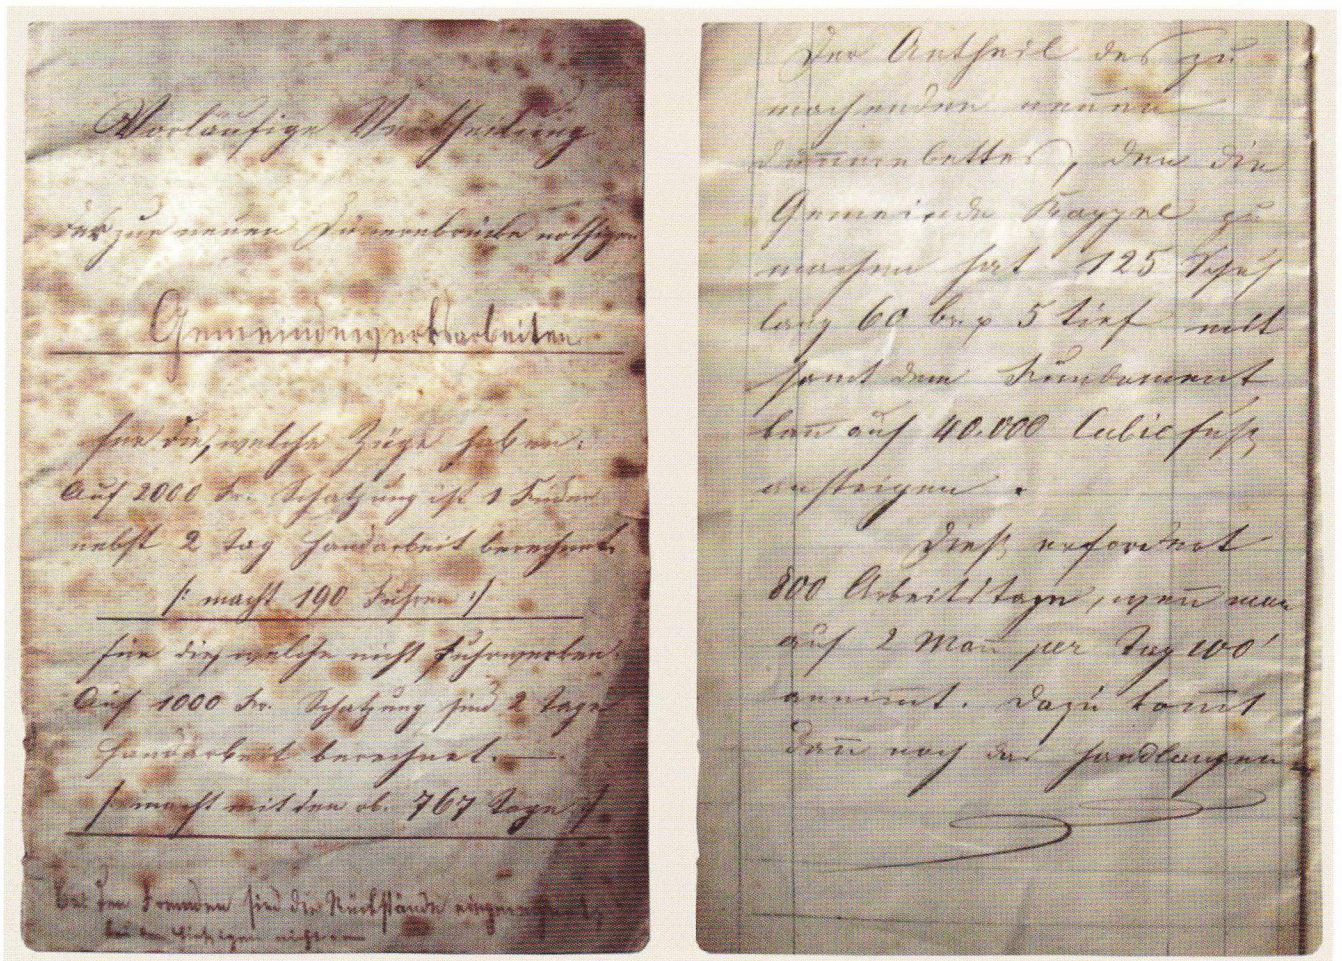 Vorläufige Vertheilung
der zur neuen Dünnernbrücke nöthigen
Gemeindewerksarbeiten
für die, welche Züge haben:
Auf 2000 Fr. Schatzung ist 1 Fuder
nebst 2 Tag Handarbeit berechnet.
/: macht 190 Fuhren :/
für die, welche nicht Fuhrwerken:
Auf 1000 Fr. Schatzung sind 2 Tage
Handarbeit berechnet.
/: macht mit den ob. 767 Tage :/
Bei den Fremden sind die Rückstände
bei den Hiesigen nicht
Der Antheil des zu
machenden neuen
Dünnernbettes, den die
Gemeinde Kappel zu
machen hat 125 Schuh
lang 60 br. 5 tief mit
samt dem Fundament
kan̄ auf 40.000 Cubicfuß
ansteigen.
Dieß erfordert
800 Arbeitstage, wen̄ man
auf 2 Man̄ per Tag 100'
annim̄t. Dazu kom̄t
dan̄ noch das Handlangen